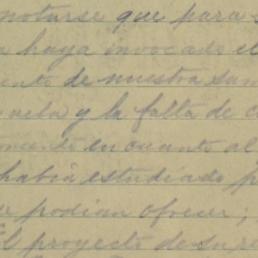 notarse que para
haya invocado el
de nuestra
y la falta de
en cuanto al
habia estudiado
podian ofrecer;
El proyecto de su